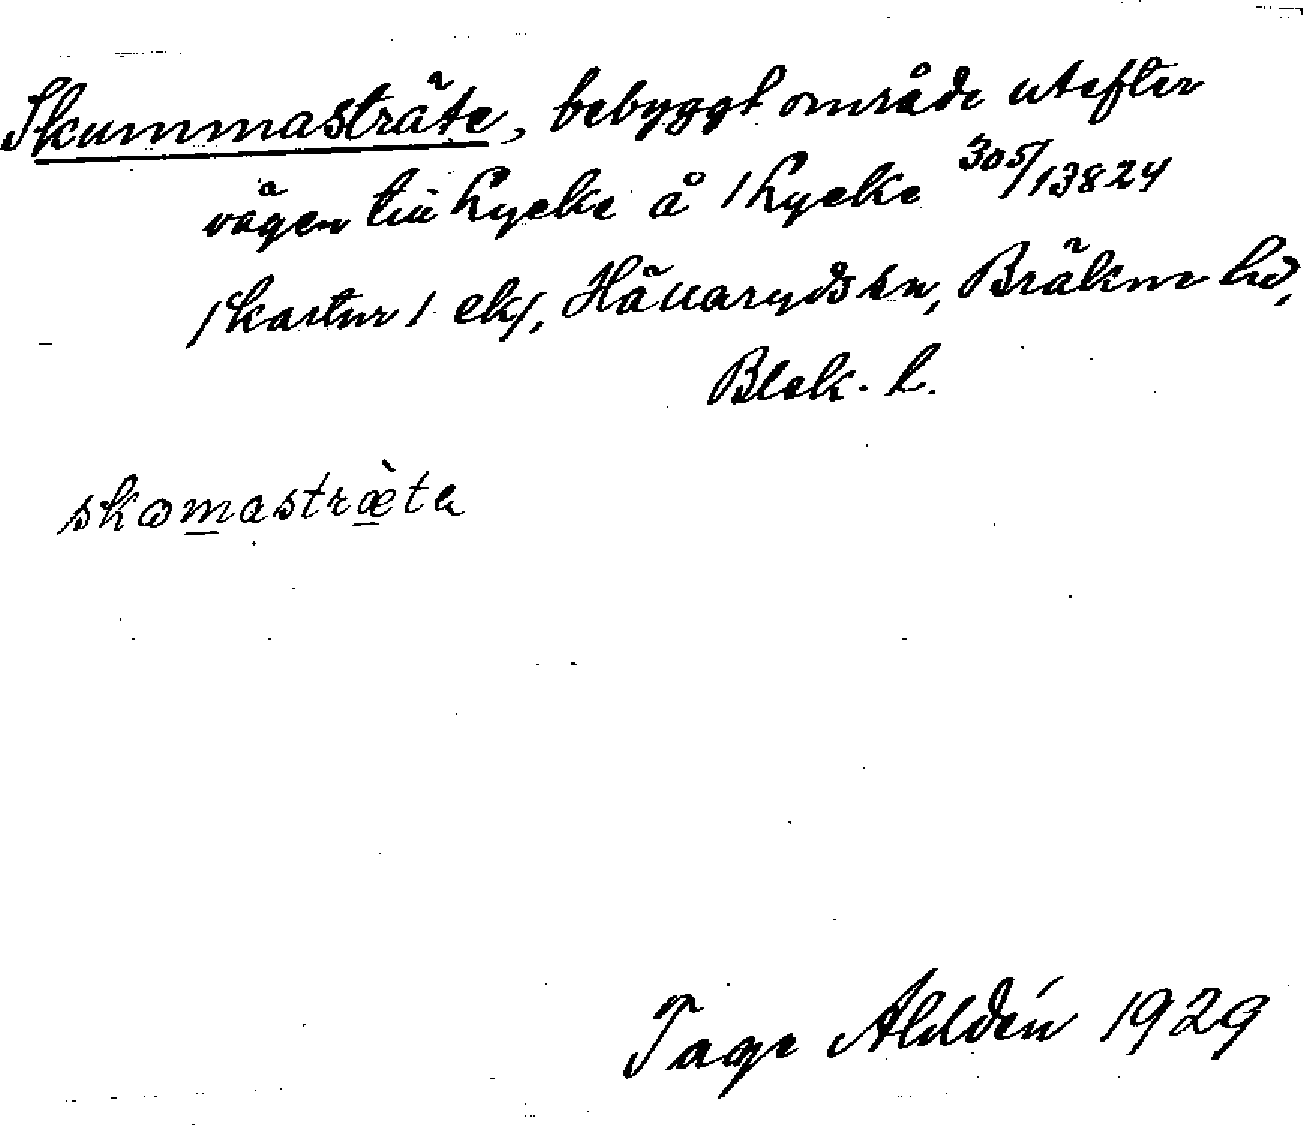 Skummasträte, bebyggt område utefter
vägen till Lycke å 1 Lycke 305/13824
skattur 1 ek/, Hällaryds sn, Bräkne hd,
Blek. L.
skomastræta
Tage Ahldén 1929